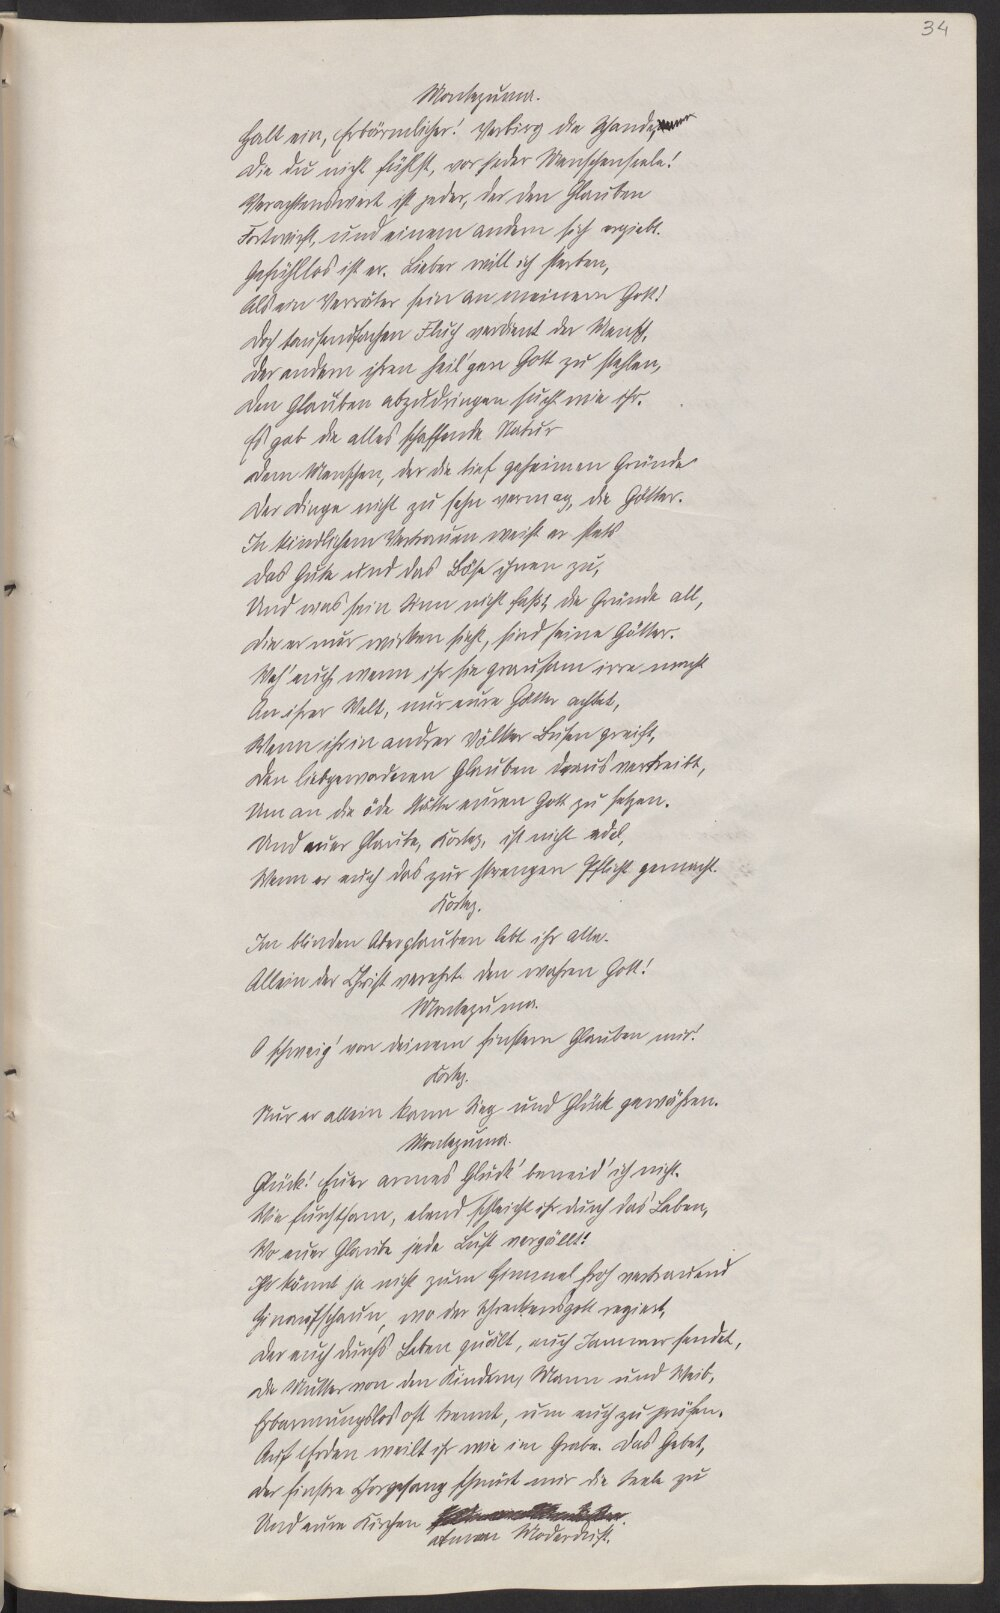 34
Montezuma.
Halt ein, Erbärmlicher! Verbirg die Schande,
Die du nicht fühlst, vor jeder Menschenseele!
Verachtenswert ist jeder, der den Glauben
Fortwirft, und einem andern sich ergiebt.
Gefühllos ist er. Lieber will ich sterben,
Als ein Verräter sein an meinem Gott!
Doch tausendfachen Fluch verdient der Mensch,
Der andern ihren heil'gen Gott zu stehlen,
Den Glauben abzudringen sucht wie ihr.
Es gab die alles schaffende Natur
Dem Menschen, der die tief geheimen Gründe
Der Dinge nicht zu sehn vermag, die Götter.
In kindlichem Vertrauen weist er stets
Das Gute und das Böse ihnen zu,
Und was sein Sinn nicht faßt, die Gründe all,
Die er nur wirken sieht, sind seine Götter.
Weh' euch, wenn ihr sie grausam irre macht
An ihrer Welt, nur eure Götter achtet,
Wenn ihr in andrer Völker Busen greift,
Den liebgewordenen Glauben draus vertreibt,
Um an die öde Stätte euren Gott zu setzen.
Und euer Glaube, Kortez, ist nicht edel,
Wenn er euch das zur strengen Pflicht gemacht.
Kortez.
Im blinden Aberglauben lebt ihr alle.
Allein der Christ verehrt den wahren Gott!
Montezuma.
O schweig' von deinem finstern Glauben mir!
Kortez.
Nur er allein kann Sieg und Glück gewähren.
Montezuma.
Glück! Euer armes Glück' beneid' ich nicht.
Wie furchtsam, elend schleicht ihr durch das Leben,
Wo euer Glaube jede Lust vergällt!
Ihr könnt ja nicht zum Himmel froh vertrauend
Hinaufschaun, wo der Schreckensgott regiert,
Der euch durchs Leben quält, euch Jammer sendet,
Die Mutter von den Kindern, Mann und Weib,
Erbarmungslos oft trennt, um euch zu prüfen.
Auf Erden weilt ihr wie im Grabe. Das Gebet,
Der finstre Chorgesang schnürt mir die Seele zu
Und eure Kirchen
atmen Moderduft.